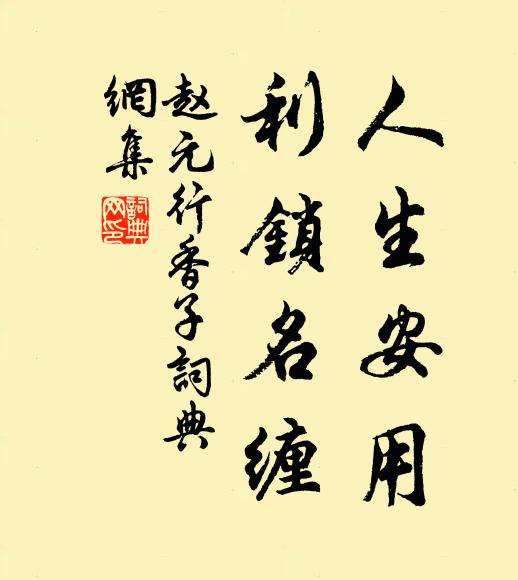 人生安用
利鎖名缠
赵元行香子詞典
網集
詞典
网印